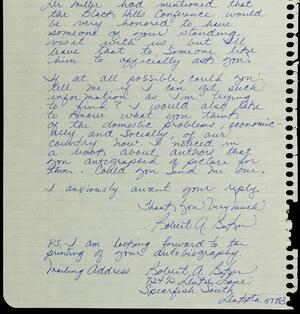 Her Miller had mentioned that
the Black Hills Conference would
be very honored to have
someone of your standing
visit with us but I'll
leave that to someone like
him to officially ask you.
If at all possible, could you
tell me if I can get such
information as I'm trying
to find? I would also like
to know what you think
of the domestic problems, economic-
ally and socially, of our
country now. I noticed in
a book about authors that
you autographed a picture for
them. Could you send me one.
I anxiously await your reply.
Thank you very much
Robert A.
P.S. I am looking forward to the
printing of your autobiography.
Mailing Address Robert A.
Lane
Spearfish South
Dakota 57783